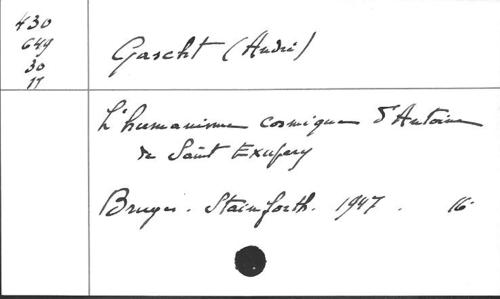 430
649
30
17
Gascht (André)
L'humanisme cosmique d'Antoine
de Saint Exupery
Bruges. Stainforth. 1947. 16